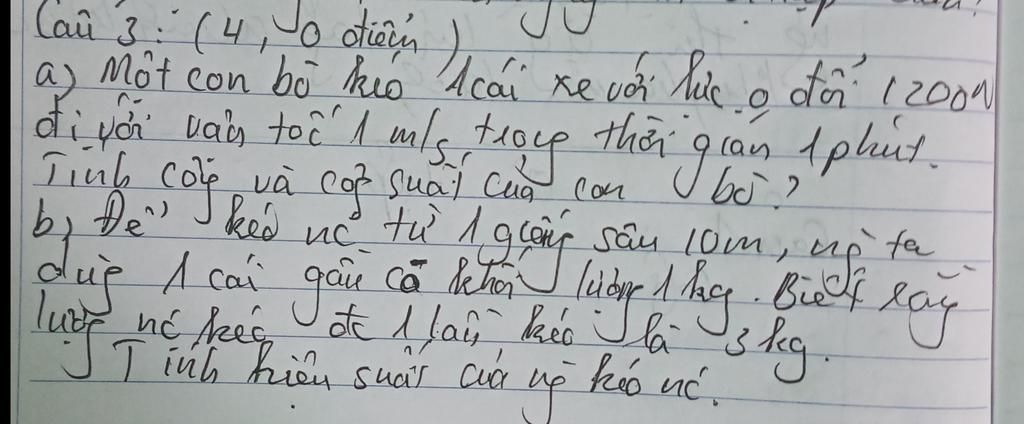 Câu 3: (4,0 điểm)
a) Một con bò kéo 1 cái xe với lực ko đổi 1200N
đi với vận tốc 1 m/s trong thời gian 1 phút.
Tính công và công suất của con bò?
b, Để kéo nc từ 1 giếng sâu 10m, ng ta
dùng 1 cái gầu có khối lượng 1 kg. Biết rằng
lượng nc kéo đc 1 lần kéo là 3 kg.
Tính hiệu suất của ng kéo nc.